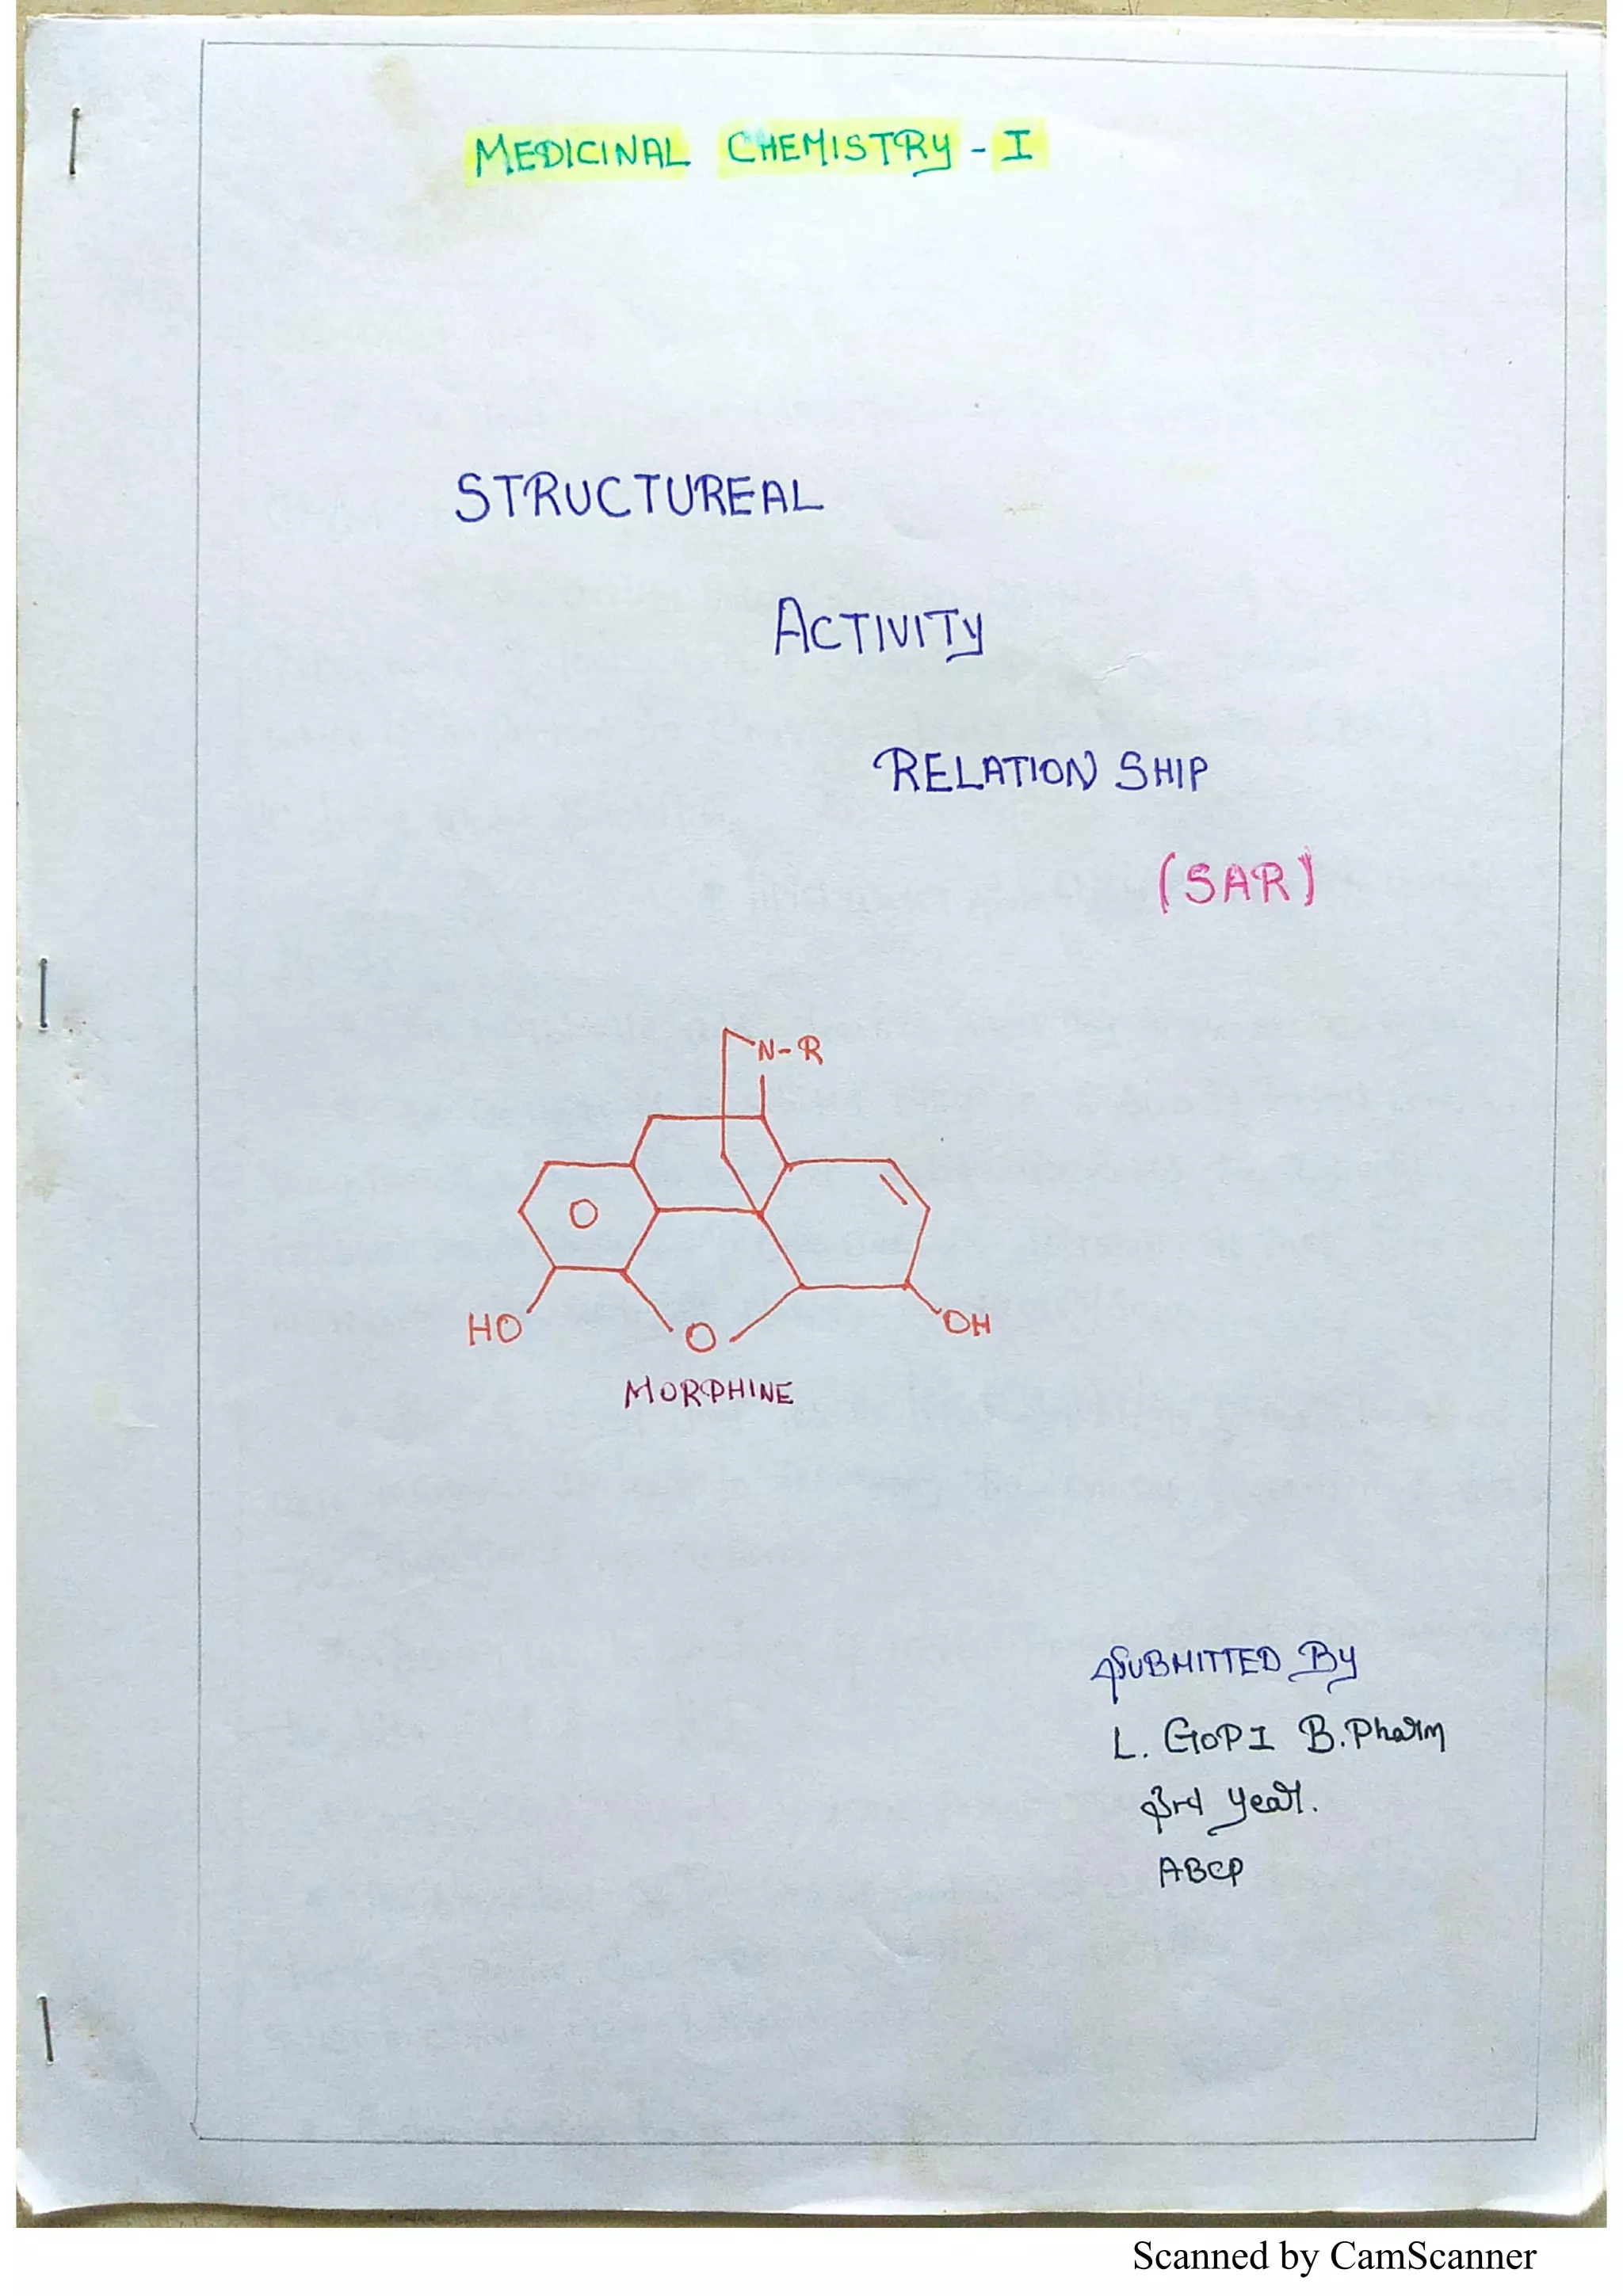 MEDICINAL CHEMISTRY - I
STRUCTUREAL
ACTIVITY
RELATION SHIP
(SAR)
N-R
O
HO
O
OH
MORPHINE
SUBMITTED By
L. GOPI B.Pharm
3rd year.
ABCP
Scanned by CamScanner